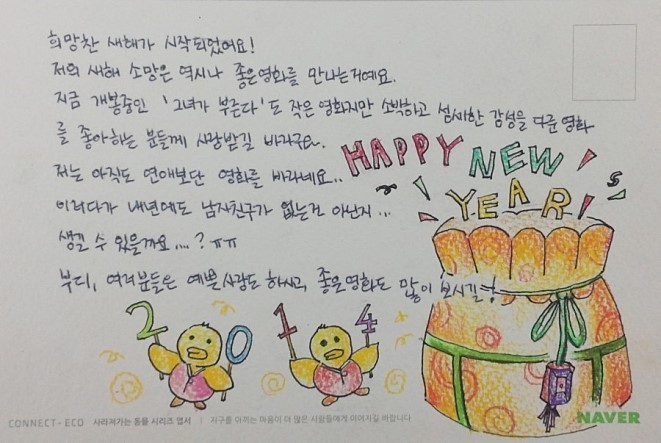 희망찬 새해가 시작되었어요!
저의 새해 소망은 역시나 좋은영화를 만나는거예요.
지금 개봉중인 '그녀가 부른다'도 작은 영화지만 소박하고 섬세한 감성을 다룬 영화
를 좋아하는 분들께 사랑받길 바라구요~
저는 아직도 연애보단 영화를 바라네요..
이러다가 내년에도 남자친구가 없는건 아닌지...
생길 수 있을까요....? ㅠㅠ
부디, 여러분들은 예쁜사랑도 하시고, 좋은영화도 많이 보시길!
HAPPY NEW
YEAR
2014
CONNECT-ECO 사라져가는 동물 시리즈 엽서 | 지구를 아끼는 마음이 더 많은 사람들에게 이어지길 바랍니다
NAVER